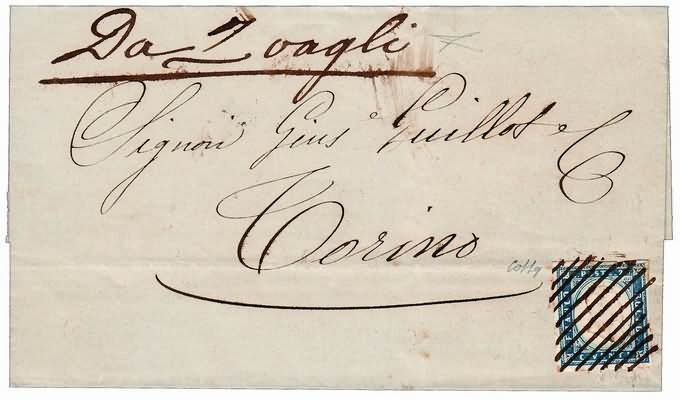 Da Zoagli
Signori Gius.e Guillot e C.
Torino